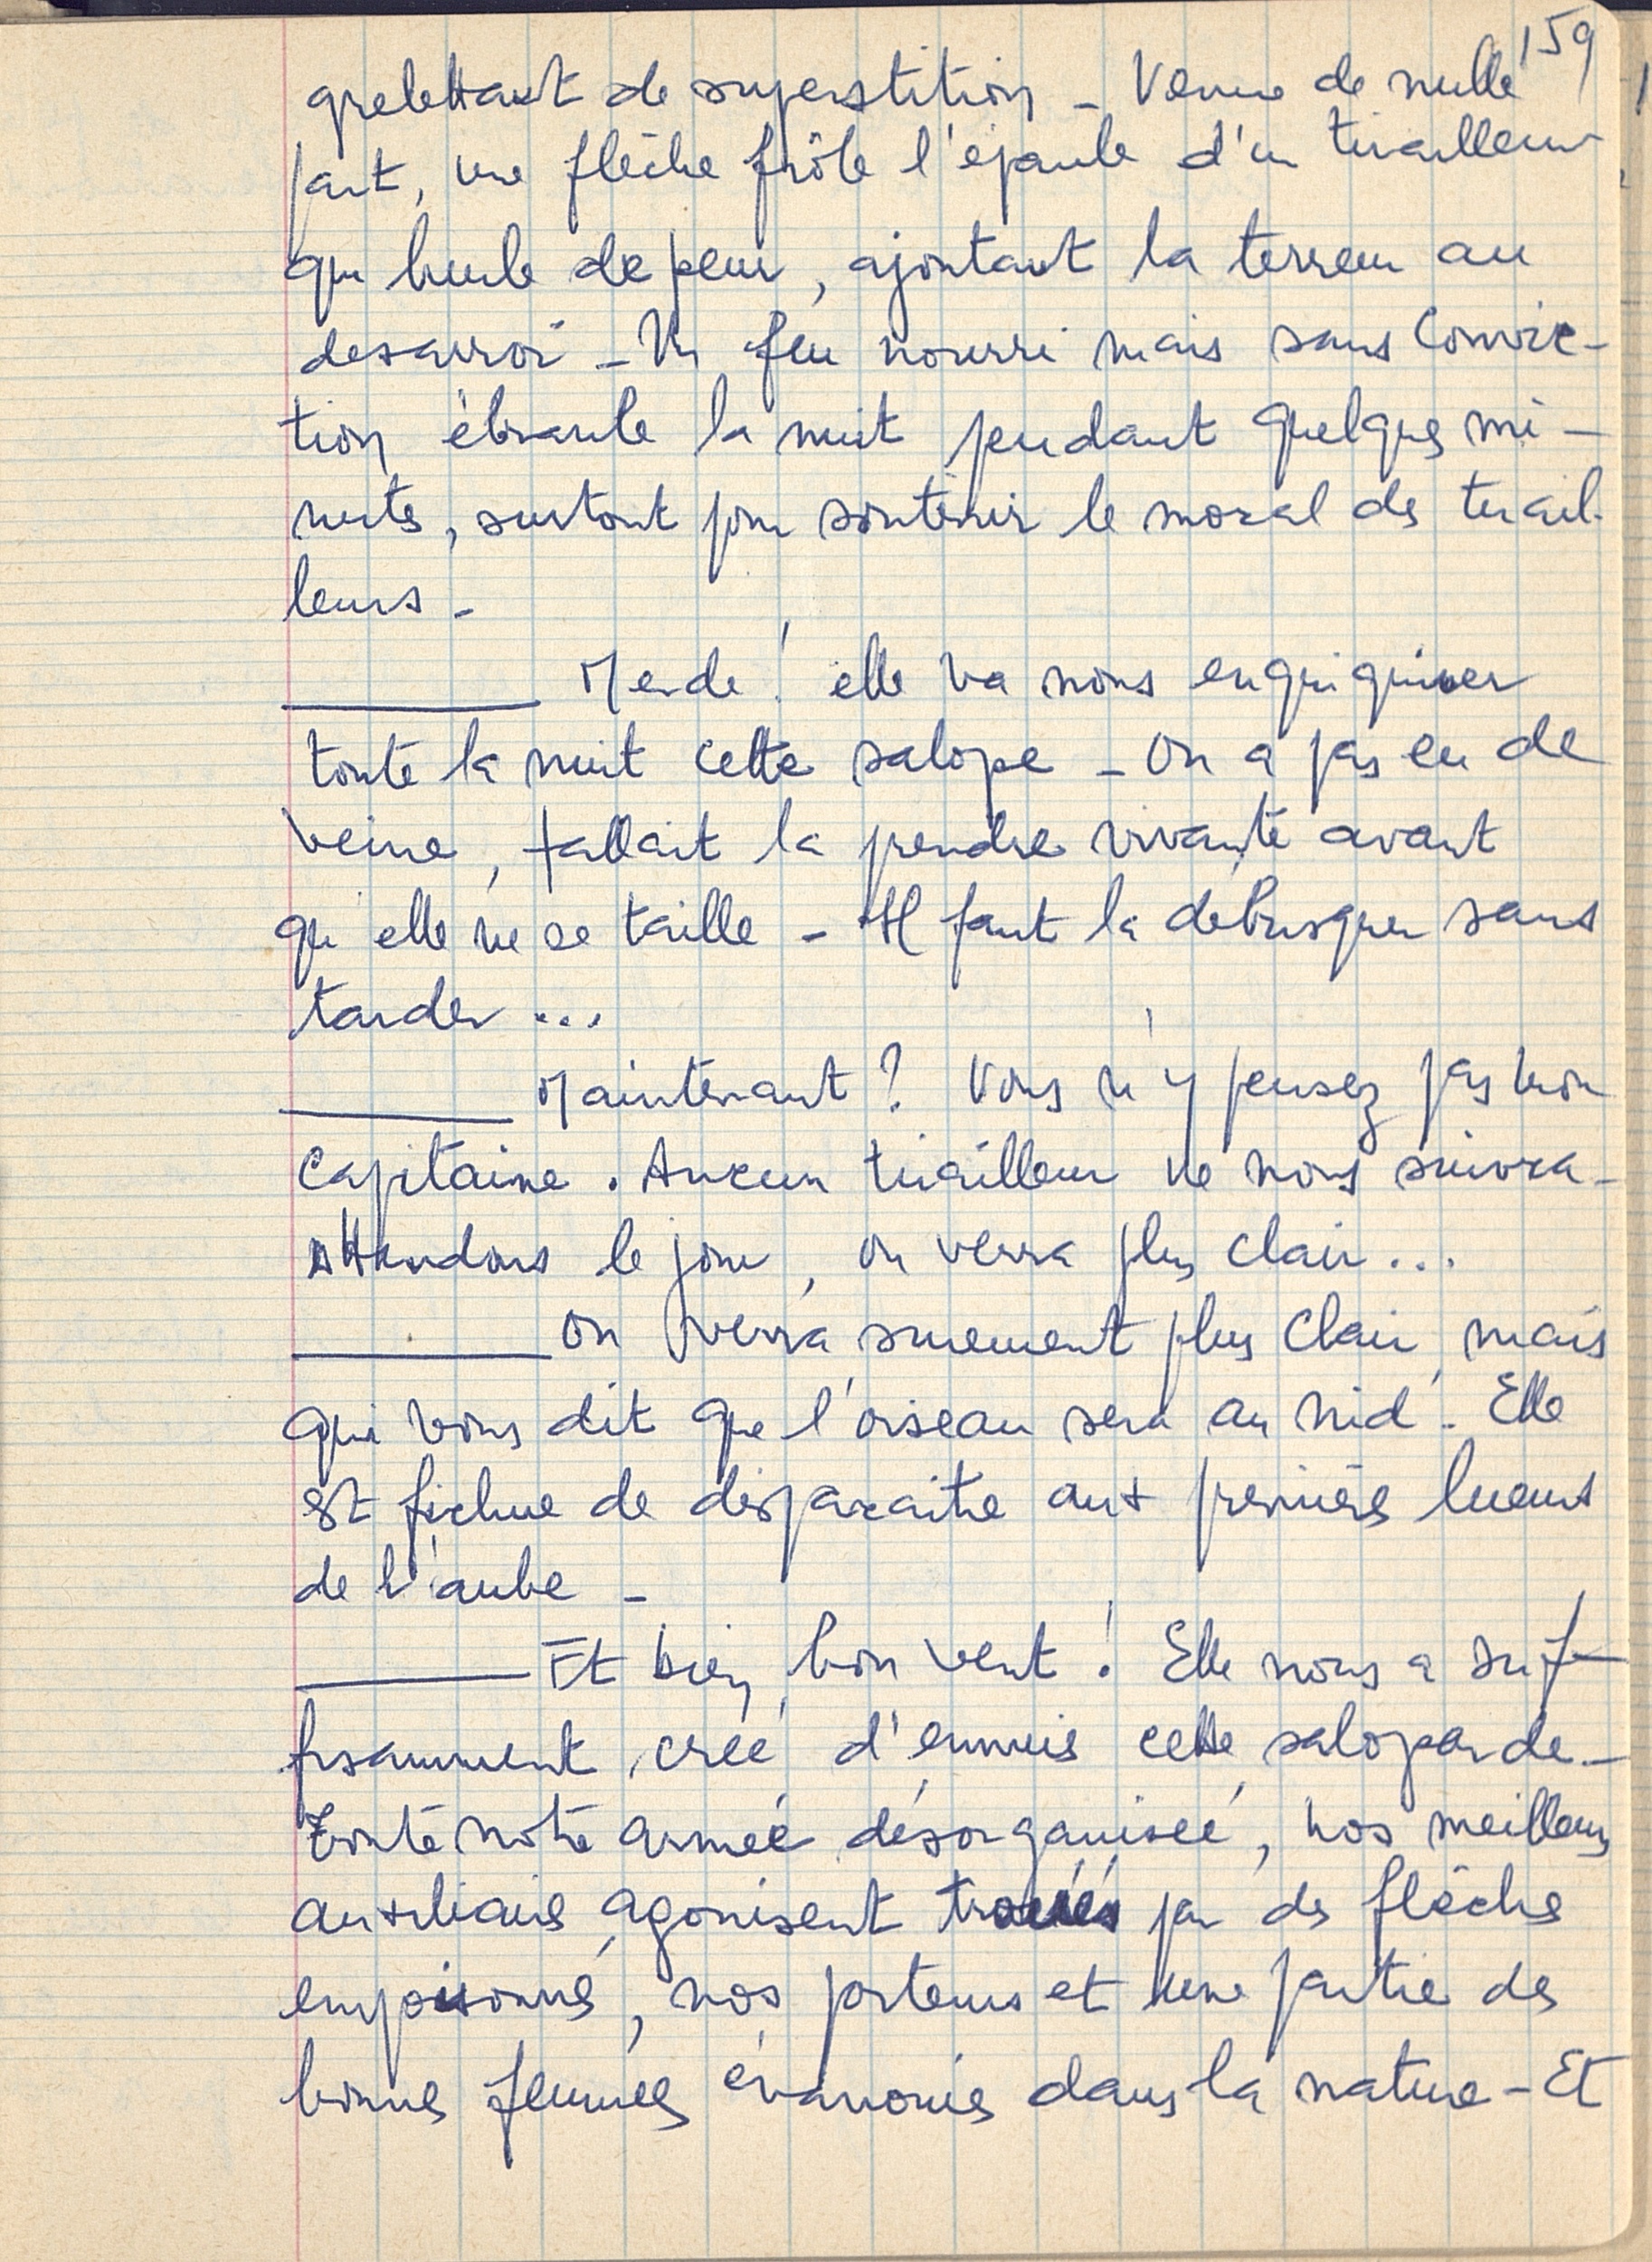 159
grelottant de superstition - Venue de nulle
part, une flèche frôle l'épaule d'un tirailleur
qui hurle de peur, ajoutant la terreur au
desarroi - Un feu nourri mais sans convic-
tion ébranle la nuit pendant quelques mi-
nutes, surtout pour soutenir le moral des tirail-
leurs -
______ Merde ! elle va nous engriguiner
toute la nuit cette salope - On a pas eu de
veine, fallait la prendre vivante avant
qu'elle ne se taille - Il faut la débusquer sans
tarder ...
______ Maintenant ? Vous n'y pensez pas mon
capitaine . Aucun tirailleur ne nous suivra -
Attendons le jour, on verra plus clair ...
______ On verra surement plus clair, mais
qui vous dit que l'oiseau sera au nid . Elle
est fichue de disparaitre aux premières lueurs
de l'aube -
______ Et bien, bon vent ! Elle nous a suf-
fisamment créé d'ennuis cette saloparde -
Toute notre armée désorganisée, nos meilleurs
auxiliaires agonisent troués par des flèches
empoisonnés, nos porteurs et une partie des
bonnes femmes évanouies dans la nature - Et